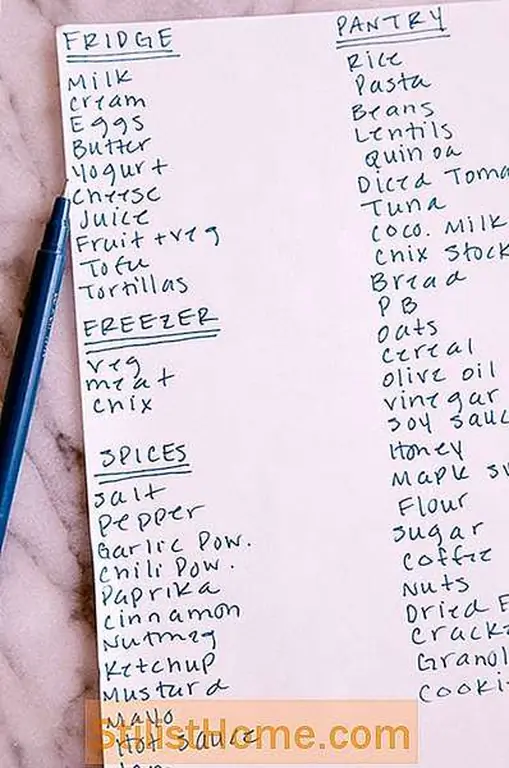 FRIDGE
Milk
Cream
Eggs
Butter
Yogurt
Cheese
Juice
Fruit + veg
Tofu
Tortillas
FREEZER
veg
meat
chix
SPICES
Salt
Pepper
Garlic Pow.
Chili Pow.
Paprika
Cinnamon
Nutmeg
Ketchup
Mustard
Mayo
Hot sauce
PANTRY
Rice
Pasta
Beans
Lentils
Quinoa
Diced Toma
Tuna
Coco. Milk
Chix Stock
Bread
PB
Oats
Cereal
Olive oil
Vinegar
Soy sauc
Honey
Maple
Flour
Sugar
Coffee
Nuts
Dried
Crack
Granol
Cooki
StilistHome.com